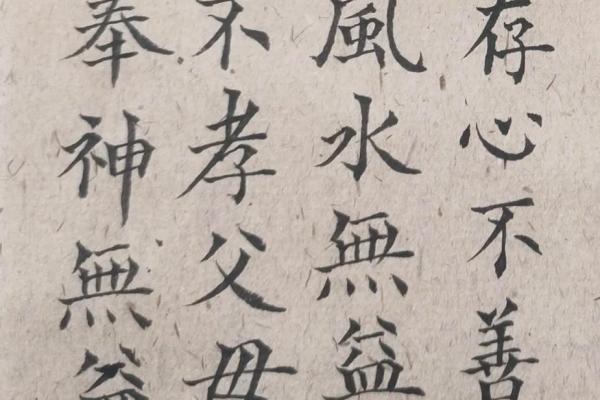 存心不善
風水無益
不孝父母
奉神無益